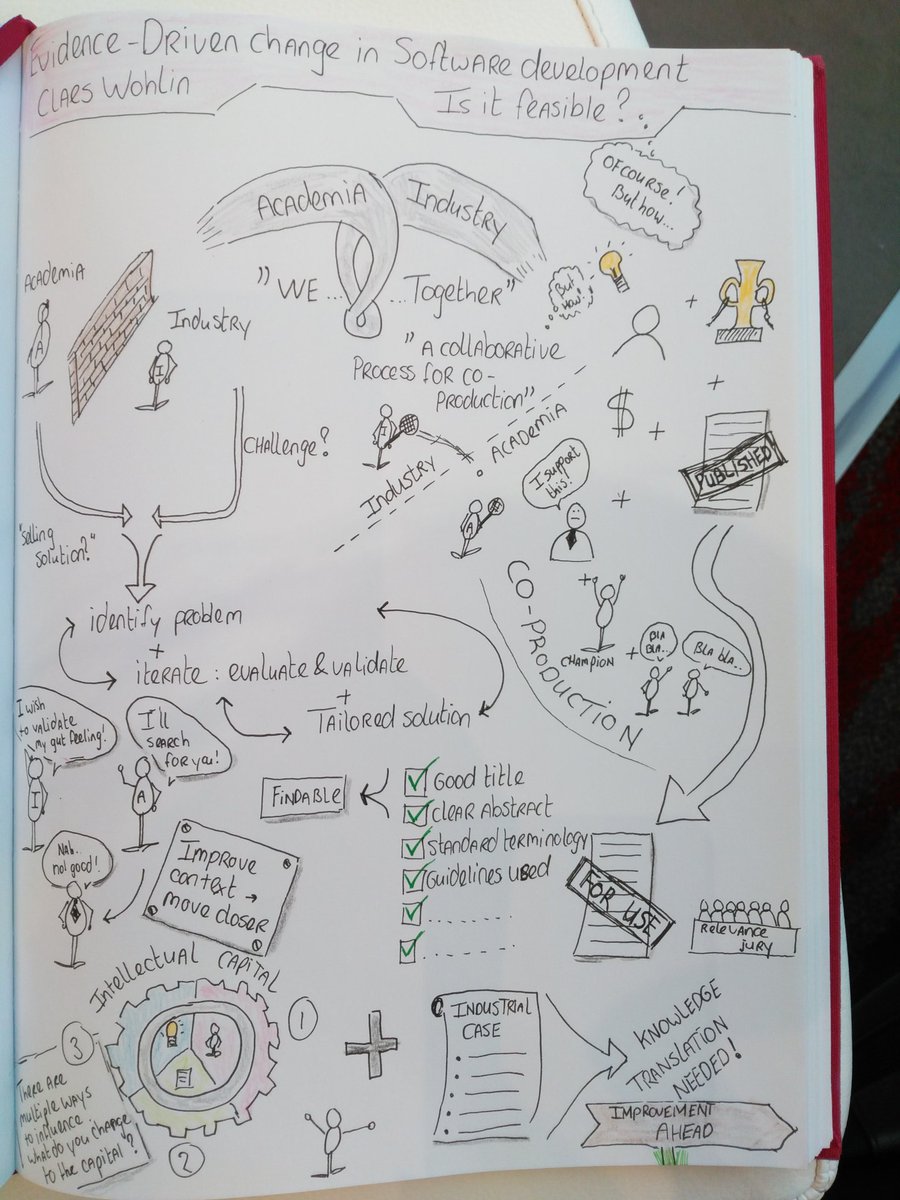 Evidence-Driven change in Software development
Claes Wohlin
Is it feasible?
OF COURSE!
But how...
ACADEMIA
Industry
"WE... ...Together"
But
How!
ACADEMIA
Industry
A
I
"A collaborative
Process for co-
Production"
$
PUBLISHED
CHALLENGE?
I
Industry
ACADEMIA
A
I support
this!
"selling
solution?"
identify problem
+
iterate: evaluate & validate
+
Tailored solution
CO-PRODUCTION
CHAMPION
BLA
BLA..
BLA bla..
I wish
to validate
my gut feeling!
I
I'll
search
for you!
A
Nah..
not good!
Improve
context →
move closer
FINDABLE
Good title
Clear Abstract
Standard terminology
Guidelines used
FOR USE
Relevance
jury
Intellectual CAPITAL
1
2
3
There are
multiple ways
to influence
what do you change
to the capital?
Industrial
CASE
KNOWLEDGE
TRANSLATION
NEEDED!
IMPROVEMENT
AHEAD